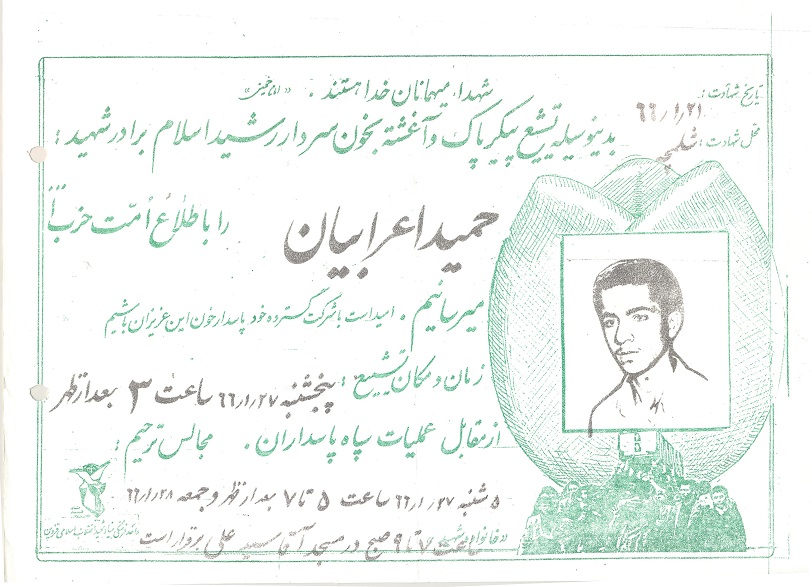 شهداء میهمانان خدا هستند . «امام خمینی»
تاریخ شهادت : ۶۶/۱/۲۱
محل شهادت : شلمچه
بدینوسیله تشیع پیکر پاک و آغشته بخون سردار رشید اسلام برادر شهید :
حمید اعرابیان را باطلاع امت حزب ا...
میرسانیم . امید است با شرکت گسترده خود پاسدار خون این عزیزان باشیم
زمان و مکان تشییع : پنجشنبه ۶۶/۱/۲۷ ساعت ۳ بعد از ظهر
از مقابل عملیات سپاه پاسداران . مجالس ترحیم :
۵ شنبه ۶۶/۱/۲۷ ساعت ۵ تا ۷ بعد از ظهر و جمعه ۶۶/۱/۲۸
ساعت ۷ تا ۹ صبح در مسجد آقا سید علی برقرار است
«خانواده شهید
واحد فرهنگی بنیاد شهید انقلاب اسلامی قزوین